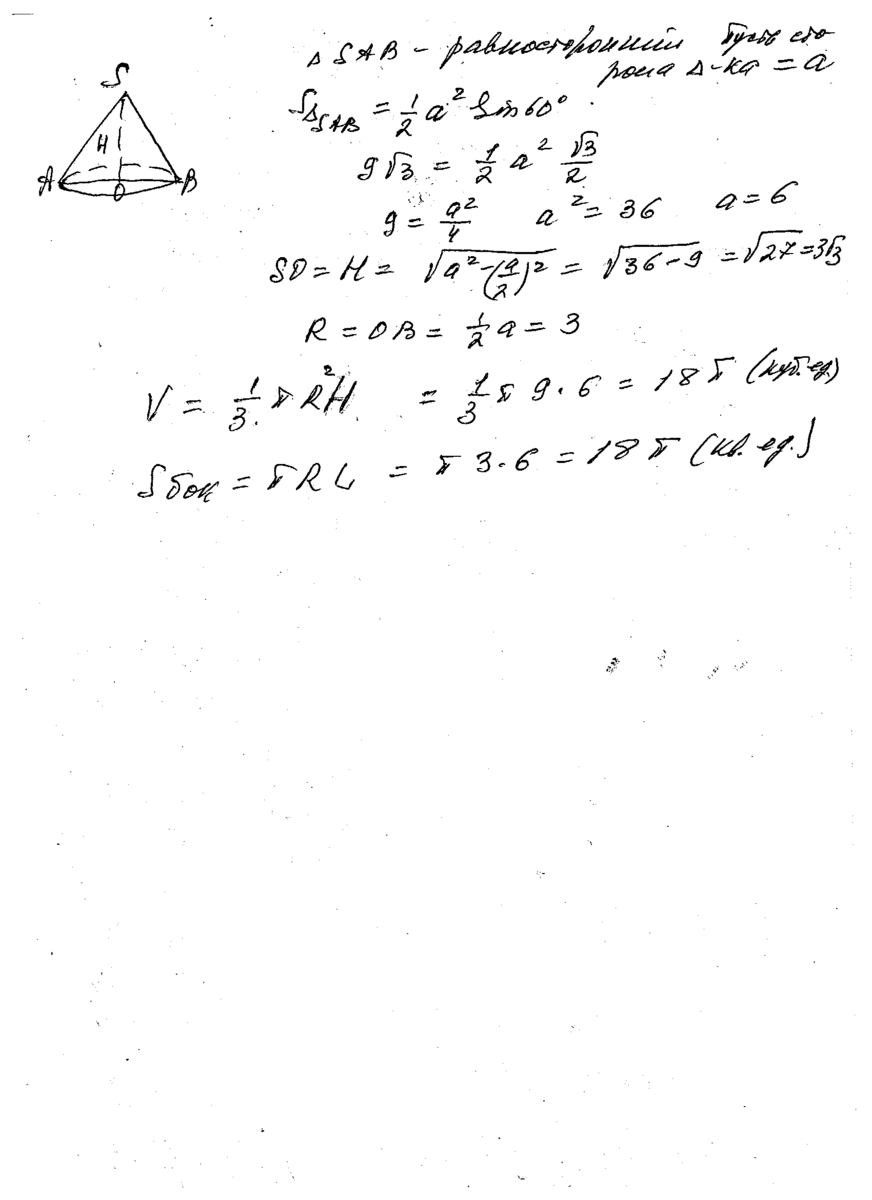 △SAB – равносторонний Пусть сто-
рона △-ка = a
S
H
A
O
B
S△SAB = 1/2 a² sin 60°.
9√3 = 1/2 a² √3/2
9 = a²/4 a² = 36 a = 6
SO = H = √(a² – (a/2)²) = √(36 – 9) = √27 = 3√3
R = OB = 1/2 a = 3
V = 1/3 π R²H = 1/3 π 9 · 6 = 18 π (куб. ед)
Sбок = π R L = π 3 · 6 = 18 π (кв. ед.)